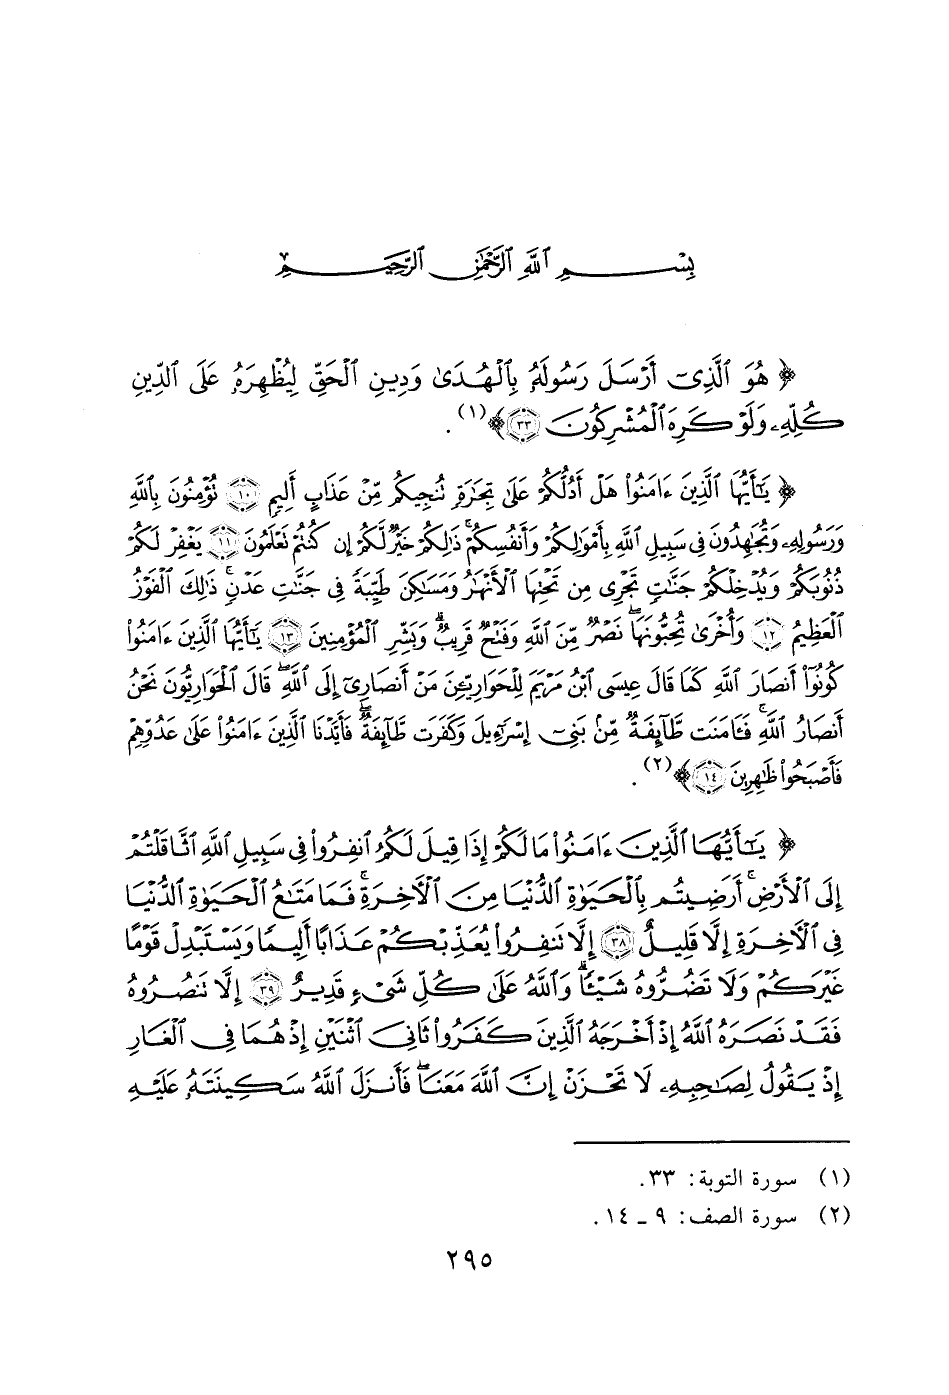 بِسْمِ ٱللَّهِ ٱلرَّحْمَٰنِ ٱلرَّحِيمِ
﴿ هُوَ ٱلَّذِىٓ أَرْسَلَ رَسُولَهُۥ بِٱلْهُدَىٰ وَدِينِ ٱلْحَقِّ لِيُظْهِرَهُۥ عَلَى ٱلدِّينِ
كُلِّهِۦ وَلَوْ كَرِهَ ٱلْمُشْرِكُونَ ٣٣ ﴾ (١) .
﴿ يَٰٓأَيُّهَا ٱلَّذِينَ ءَامَنُوا۟ هَلْ أَدُلُّكُمْ عَلَىٰ تِجَٰرَةٍ تُنجِيكُم مِّنْ عَذَابٍ أَلِيمٍ ١٠ تُؤْمِنُونَ بِٱللَّهِ
وَرَسُولِهِۦ وَتُجَٰهِدُونَ فِى سَبِيلِ ٱللَّهِ بِأَمْوَٰلِكُمْ وَأَنفُسِكُمْ ۚ ذَٰلِكُمْ خَيْرٌ لَّكُمْ إِن كُنتُمْ تَعْلَمُونَ ١١ يَغْفِرْ لَكُمْ
ذُنُوبَكُمْ وَيُدْخِلْكُمْ جَنَّٰتٍ تَجْرِى مِن تَحْتِهَا ٱلْأَنْهَٰرُ وَمَسَٰكِنَ طَيِّبَةً فِى جَنَّٰتِ عَدْنٍ ۚ ذَٰلِكَ ٱلْفَوْزُ
ٱلْعَظِيمُ ١٢ وَأُخْرَىٰ تُحِبُّونَهَا ۖ نَصْرٌ مِّنَ ٱللَّهِ وَفَتْحٌ قَرِيبٌ ۗ وَبَشِّرِ ٱلْمُؤْمِنِينَ ١٣ يَٰٓأَيُّهَا ٱلَّذِينَ ءَامَنُوا۟
كُونُوٓا۟ أَنصَارَ ٱللَّهِ كَمَا قَالَ عِيسَى ٱبْنُ مَرْيَمَ لِلْحَوَارِيِّۦنَ مَنْ أَنصَارِىٓ إِلَى ٱللَّهِ ۖ قَالَ ٱلْحَوَارِيُّونَ نَحْنُ
أَنصَارُ ٱللَّهِ ۖ فَـَٔامَنَت طَّآئِفَةٌ مِّنۢ بَنِىٓ إِسْرَٰٓءِيلَ وَكَفَرَت طَّآئِفَةٌ ۖ فَأَيَّدْنَا ٱلَّذِينَ ءَامَنُوا۟ عَلَىٰ عَدُوِّهِمْ
فَأَصْبَحُوا۟ ظَٰهِرِينَ ١٤ ﴾ (٢) .
﴿ يَٰٓأَيُّهَا ٱلَّذِينَ ءَامَنُوا۟ مَا لَكُمْ إِذَا قِيلَ لَكُمُ ٱنفِرُوا۟ فِى سَبِيلِ ٱللَّهِ ٱثَّاقَلْتُمْ
إِلَى ٱلْأَرْضِ ۚ أَرَضِيتُم بِٱلْحَيَوٰةِ ٱلدُّنْيَا مِنَ ٱلْءَاخِرَةِ ۚ فَمَا مَتَٰعُ ٱلْحَيَوٰةِ ٱلدُّنْيَا
فِى ٱلْءَاخِرَةِ إِلَّا قَلِيلٌ ٣٨ إِلَّا تَنفِرُوا۟ يُعَذِّبْكُمْ عَذَابًا أَلِيمًا وَيَسْتَبْدِلْ قَوْمًا
غَيْرَكُمْ وَلَا تَضُرُّوهُ شَيْـًٔا ۗ وَٱللَّهُ عَلَىٰ كُلِّ شَىْءٍ قَدِيرٌ ٣٩ إِلَّا تَنصُرُوهُ
فَقَدْ نَصَرَهُ ٱللَّهُ إِذْ أَخْرَجَهُ ٱلَّذِينَ كَفَرُوا۟ ثَانِىَ ٱثْنَيْنِ إِذْ هُمَا فِى ٱلْغَارِ
إِذْ يَقُولُ لِصَٰحِبِهِۦ لَا تَحْزَنْ إِنَّ ٱللَّهَ مَعَنَا ۖ فَأَنزَلَ ٱللَّهُ سَكِينَتَهُۥ عَلَيْهِ
(١) سورة التوبة: ٣٣ .
(٢) سورة الصف: ٩ ـ ١٤ .
٢٩٥